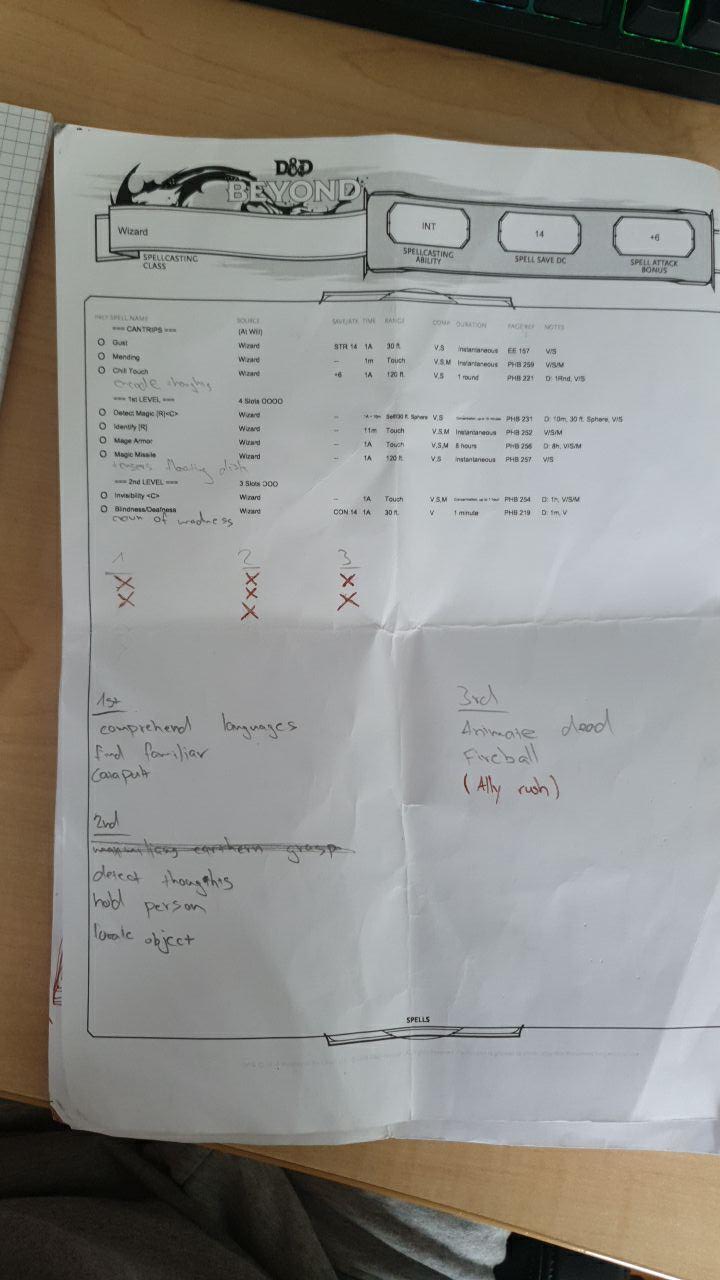 D&D
BEYOND
Wizard
SPELLCASTING
CLASS
INT
SPELLCASTING
ABILITY
14
SPELL SAVE DC
+6
SPELL ATTACK
BONUS
PREP SPELL NAME SOURCE SAVE/ATK TIME RANGE COMP DURATION PAGE REF NOTES
=== CANTRIPS === (At Will)
O Gust Wizard STR 14 1A 30 ft. V,S Instantaneous EE 157 V/S
O Mending Wizard -- 1m Touch V,S,M Instantaneous PHB 259 V/S/M
O Chill Touch Wizard +6 1A 120 ft. V,S 1 round PHB 221 D: 1Rnd, V/S
encode thoughts
=== 1st LEVEL === 4 Slots OOOO
O Detect Magic [R]<C> Wizard -- 1A Self/30 ft. Sphere V,S Concentration, up to 10 minutes PHB 231 D: 10m, 30 ft. Sphere, V/S
O Identify [R] Wizard -- 11m Touch V,S,M Instantaneous PHB 252 V/S/M
O Mage Armor Wizard -- 1A Touch V,S,M 8 hours PHB 256 D: 8h, V/S/M
O Magic Missile Wizard -- 1A 120 ft. V,S Instantaneous PHB 257 V/S
tensers floating disk
=== 2nd LEVEL === 3 Slots OOO
O Invisibility <C> Wizard -- 1A Touch V,S,M Concentration, up to 1 hour PHB 254 D: 1h, V/S/M
O Blindness/Deafness Wizard CON 14 1A 30 ft. V 1 minute PHB 219 D: 1m, V
crown of madness
1 2 3
X X X
X X X
X
1st
comprehend languages
find familiar
Catapult
2nd
earthern grasp
detect thoughts
hold person
locate object
3rd
Animate dead
Fireball
(Ally rush)
SPELLS